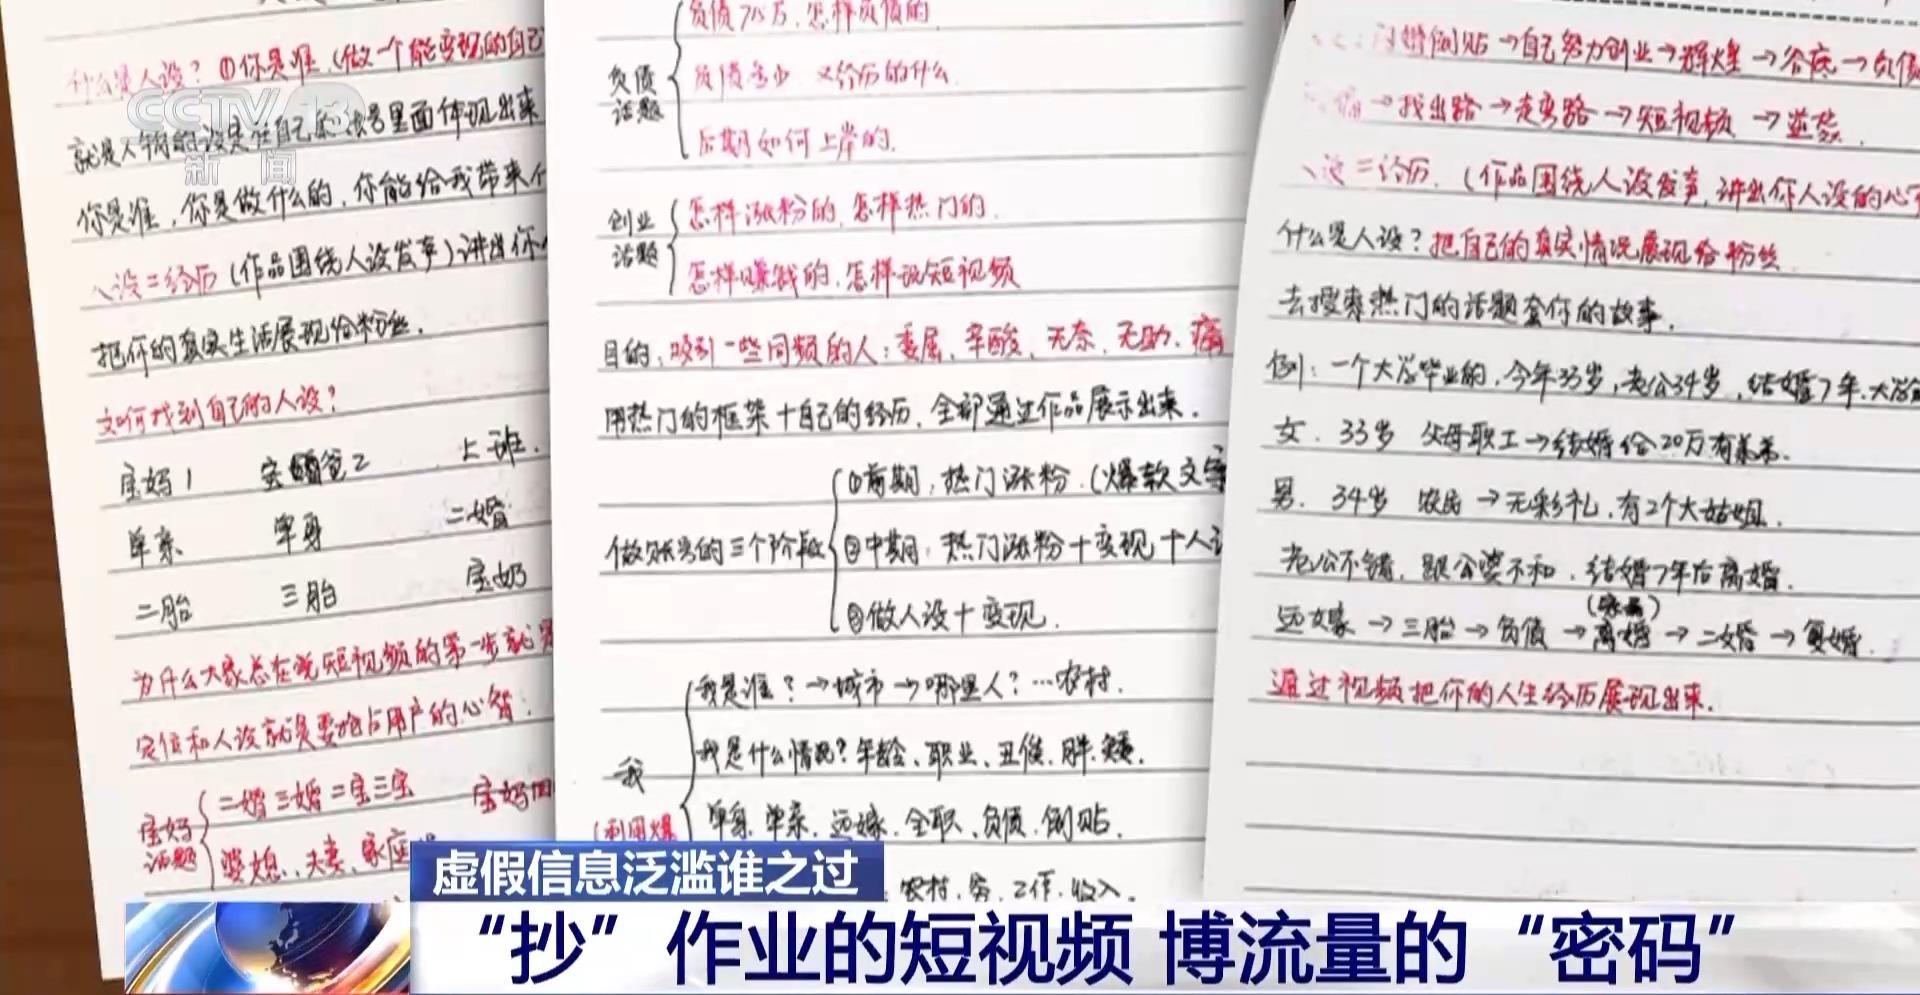 CCTV 13
新闻
什么是人设？①你是谁（做一个能变现的自己
就是人物的设定在自己的账号里面体现出来
你是谁，你是做什么的，你能给我带来什
人设＝经历（作品围绕人设发声）讲出你
把你的真实生活展现给粉丝．
如何找到自己的人设？
宝妈1 宝爸2 上班．
单亲 单身 二婚
二胎 三胎 宝奶
为什么大家总在说短视频的第一步就是
定位和人设就是要抢占用户的心智：
宝妈话题
二婚 三婚 二宝三宝 宝妈
婆媳、夫妻、家庭
负债话题
负债715万，怎样负债的
负债多少，又经历的什么．
后期如何上岸的．
创业话题
怎样涨粉的，怎样热门的．
怎样赚钱的，怎样说短视频
目的：吸引一些同频的人：委屈、辛酸、无奈、无助、痛
用热门的框架＋自己的经历，全部通过作品展示出来．
做账号的三个阶段
①前期：热门涨粉．（爆款文案
②中期：热门涨粉＋变现＋人设
③做人设＋变现．
我
（利用爆
我是谁？→城市→哪里人？…农村．
我是什么情况？年龄、职业、丑俊、胖、矮．
单身、单亲、远嫁、全职、负债、倒贴．
农村、务、工作、收入．
闪婚倒贴→自己努力创业→辉煌→谷底→负债
→找出路→走弯路→短视频→逆袭．
人设＝经历．（作品围绕人设发声，讲出你人设的心
什么是人设？把自己的真实情况展现给粉丝
去搜索热门的话题套你的故事．
例：一个大学毕业的，今年33岁，老公34岁，结婚7年．大学
女．33岁 父母职工→结婚给20万有弟弟．
男．34岁 农民→无彩礼，有2个大姑姐．
老公不错，跟公婆不和，结婚7年后离婚．
远嫁→三胎→负债→离婚→二婚→复婚．
通过视频把你的人生经历展现出来．
虚假信息泛滥谁之过
“抄”作业的短视频 博流量的“密码”